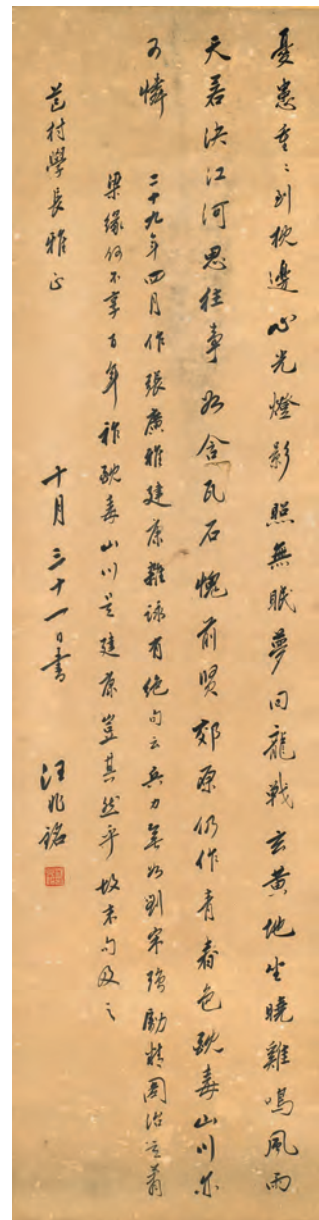 憂患重〻到枕邊心光燈影照無眠夢回龍戰玄黃地坐曉雞鳴風雨
天若決江河思往事如含瓦石愧前賢郊原仍作青春色酖毒山川亦
可憐
二十九年四月作張廣雅建康雜詠有絕句云兵力無如劉宋強勵精圖治蕭
梁緣何不享百年祚酖毒山川是建康豈其然乎故末句及之
芑村學長雅正 十月三十一日書 汪兆銘